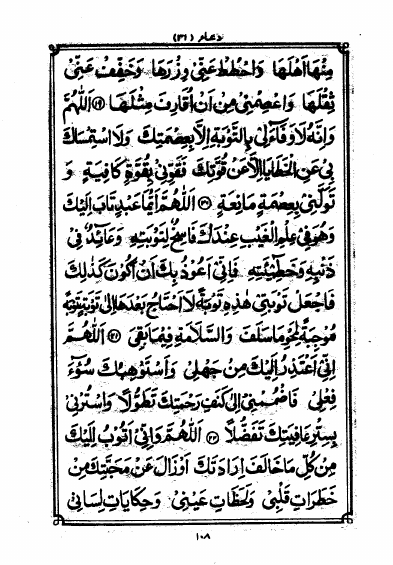 دعاء (۳۱)
مِنْهَا اَهْلَهَا وَاحْطُطْ عَنِّیْ وِزْرَهَا وَخَفِّفْ عَنِّیْ
ثِقْلَهَا وَاعْصِمْنِیْ مِنْ اَنْ اُقَارِفَ مِثْلَهَا (۱۹) اَللّٰهُمَّ
وَاِنَّهُ لَا وَفَاءَ لِیْ بِالتَّوْبَةِ اِلَّا بِعِصْمَتِكَ وَلَا اسْتِمْسَاكَ
بِیْ عَنِ الْخَطَايَا اِلَّا عَنْ قُوَّتِكَ فَقَوِّنِیْ بِقُوَّةٍ كَافِيَةٍ وَ
تَوَلَّنِیْ بِعِصْمَةٍ مَانِعَةٍ (۲۰) اَللّٰهُمَّ اَيُّمَا عَبْدٍ تَابَ اِلَيْكَ
وَهُوَ فِیْ عِلْمِ الْغَيْبِ عِنْدَكَ فَاسِخٌ لِتَوْبَتِهِ وَعَائِدٌ فِیْ
ذَنْبِهِ وَخَطِيْئَتِهِ فَاِنِّیْ اَعُوْذُ بِكَ اَنْ اَكُوْنَ كَذٰلِكَ
فَاجْعَلْ تَوْبَتِیْ هٰذِهِ تَوْبَةً لَا اَحْتَاجُ بَعْدَهَا اِلٰی تَوْبَةٍ تَوْبَةً
مُوْجِبَةً لِمَحْوِ مَا سَلَفَ وَالسَّلَامَةِ فِيْمَا بَقِیَ (۲۱) اَللّٰهُمَّ
اِنِّیْ اَعْتَذِرُ اِلَيْكَ مِنْ جَهْلِیْ وَاَسْتَوْهِبُكَ سُوْٓءَ
فِعْلِیْ فَاضْمُمْنِیْ اِلٰی كَنَفِ رَحْمَتِكَ تَطَوُّلًا وَاسْتُرْنِیْ
بِسِتْرِ عَافِيَتِكَ تَفَضُّلًا (۲۲) اَللّٰهُمَّ وَاِنِّیْ اَتُوْبُ اِلَيْكَ
مِنْ كُلِّ مَا خَالَفَ اِرَادَتَكَ اَوْ زَالَ عَنْ مَحَبَّتِكَ مِنْ
خَطَرَاتِ قَلْبِیْ وَلَحَظَاتِ عَيْنِیْ وَحِكَايَاتِ لِسَانِیْ
۱۰۸